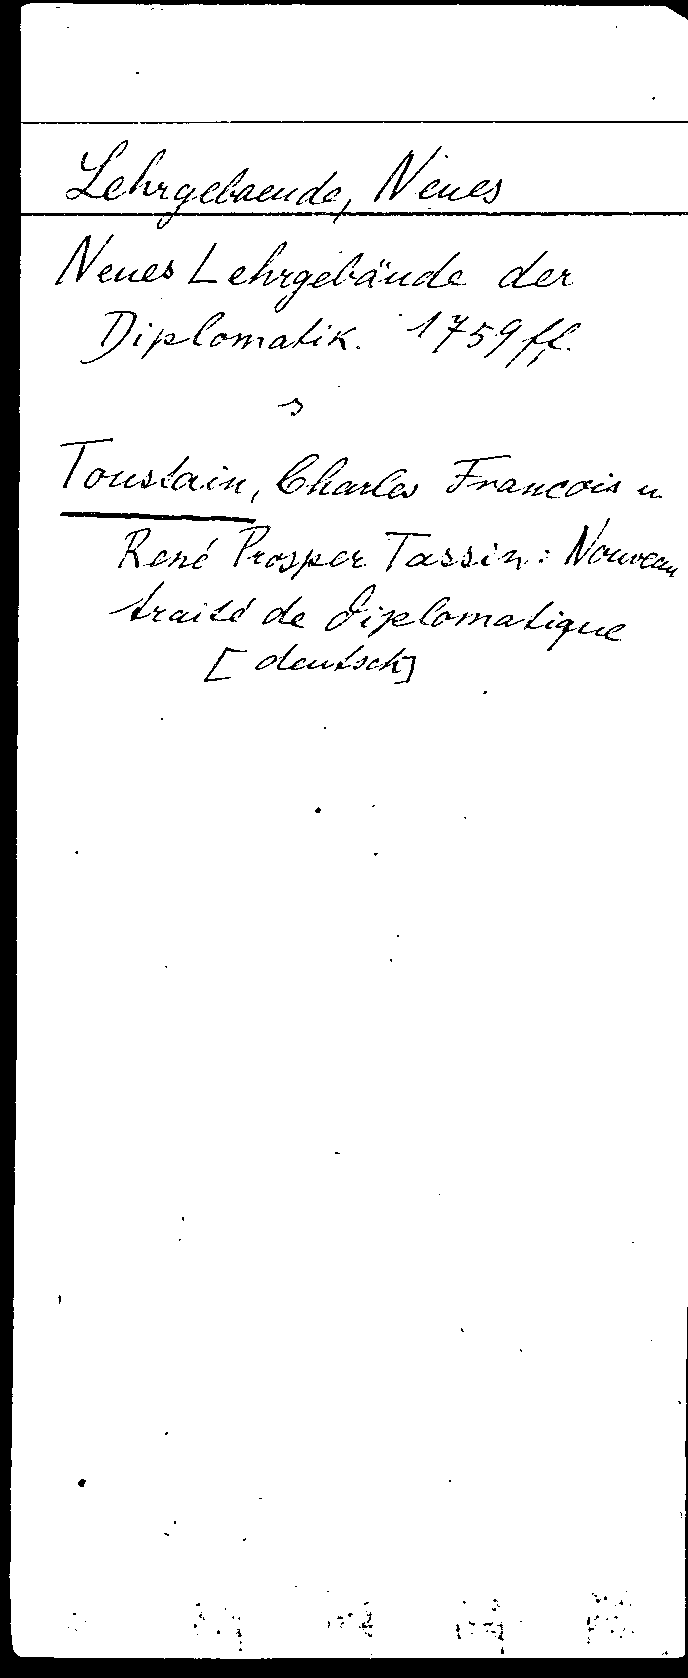 Lehrgebaeude, Neues
Neues Lehrgebäude der
Diplomatik. 1759 ff.
s
Toustain, Charles Francois u.
René Prosper Tassin: Nouveau
traité de diplomatique
[deutsch]